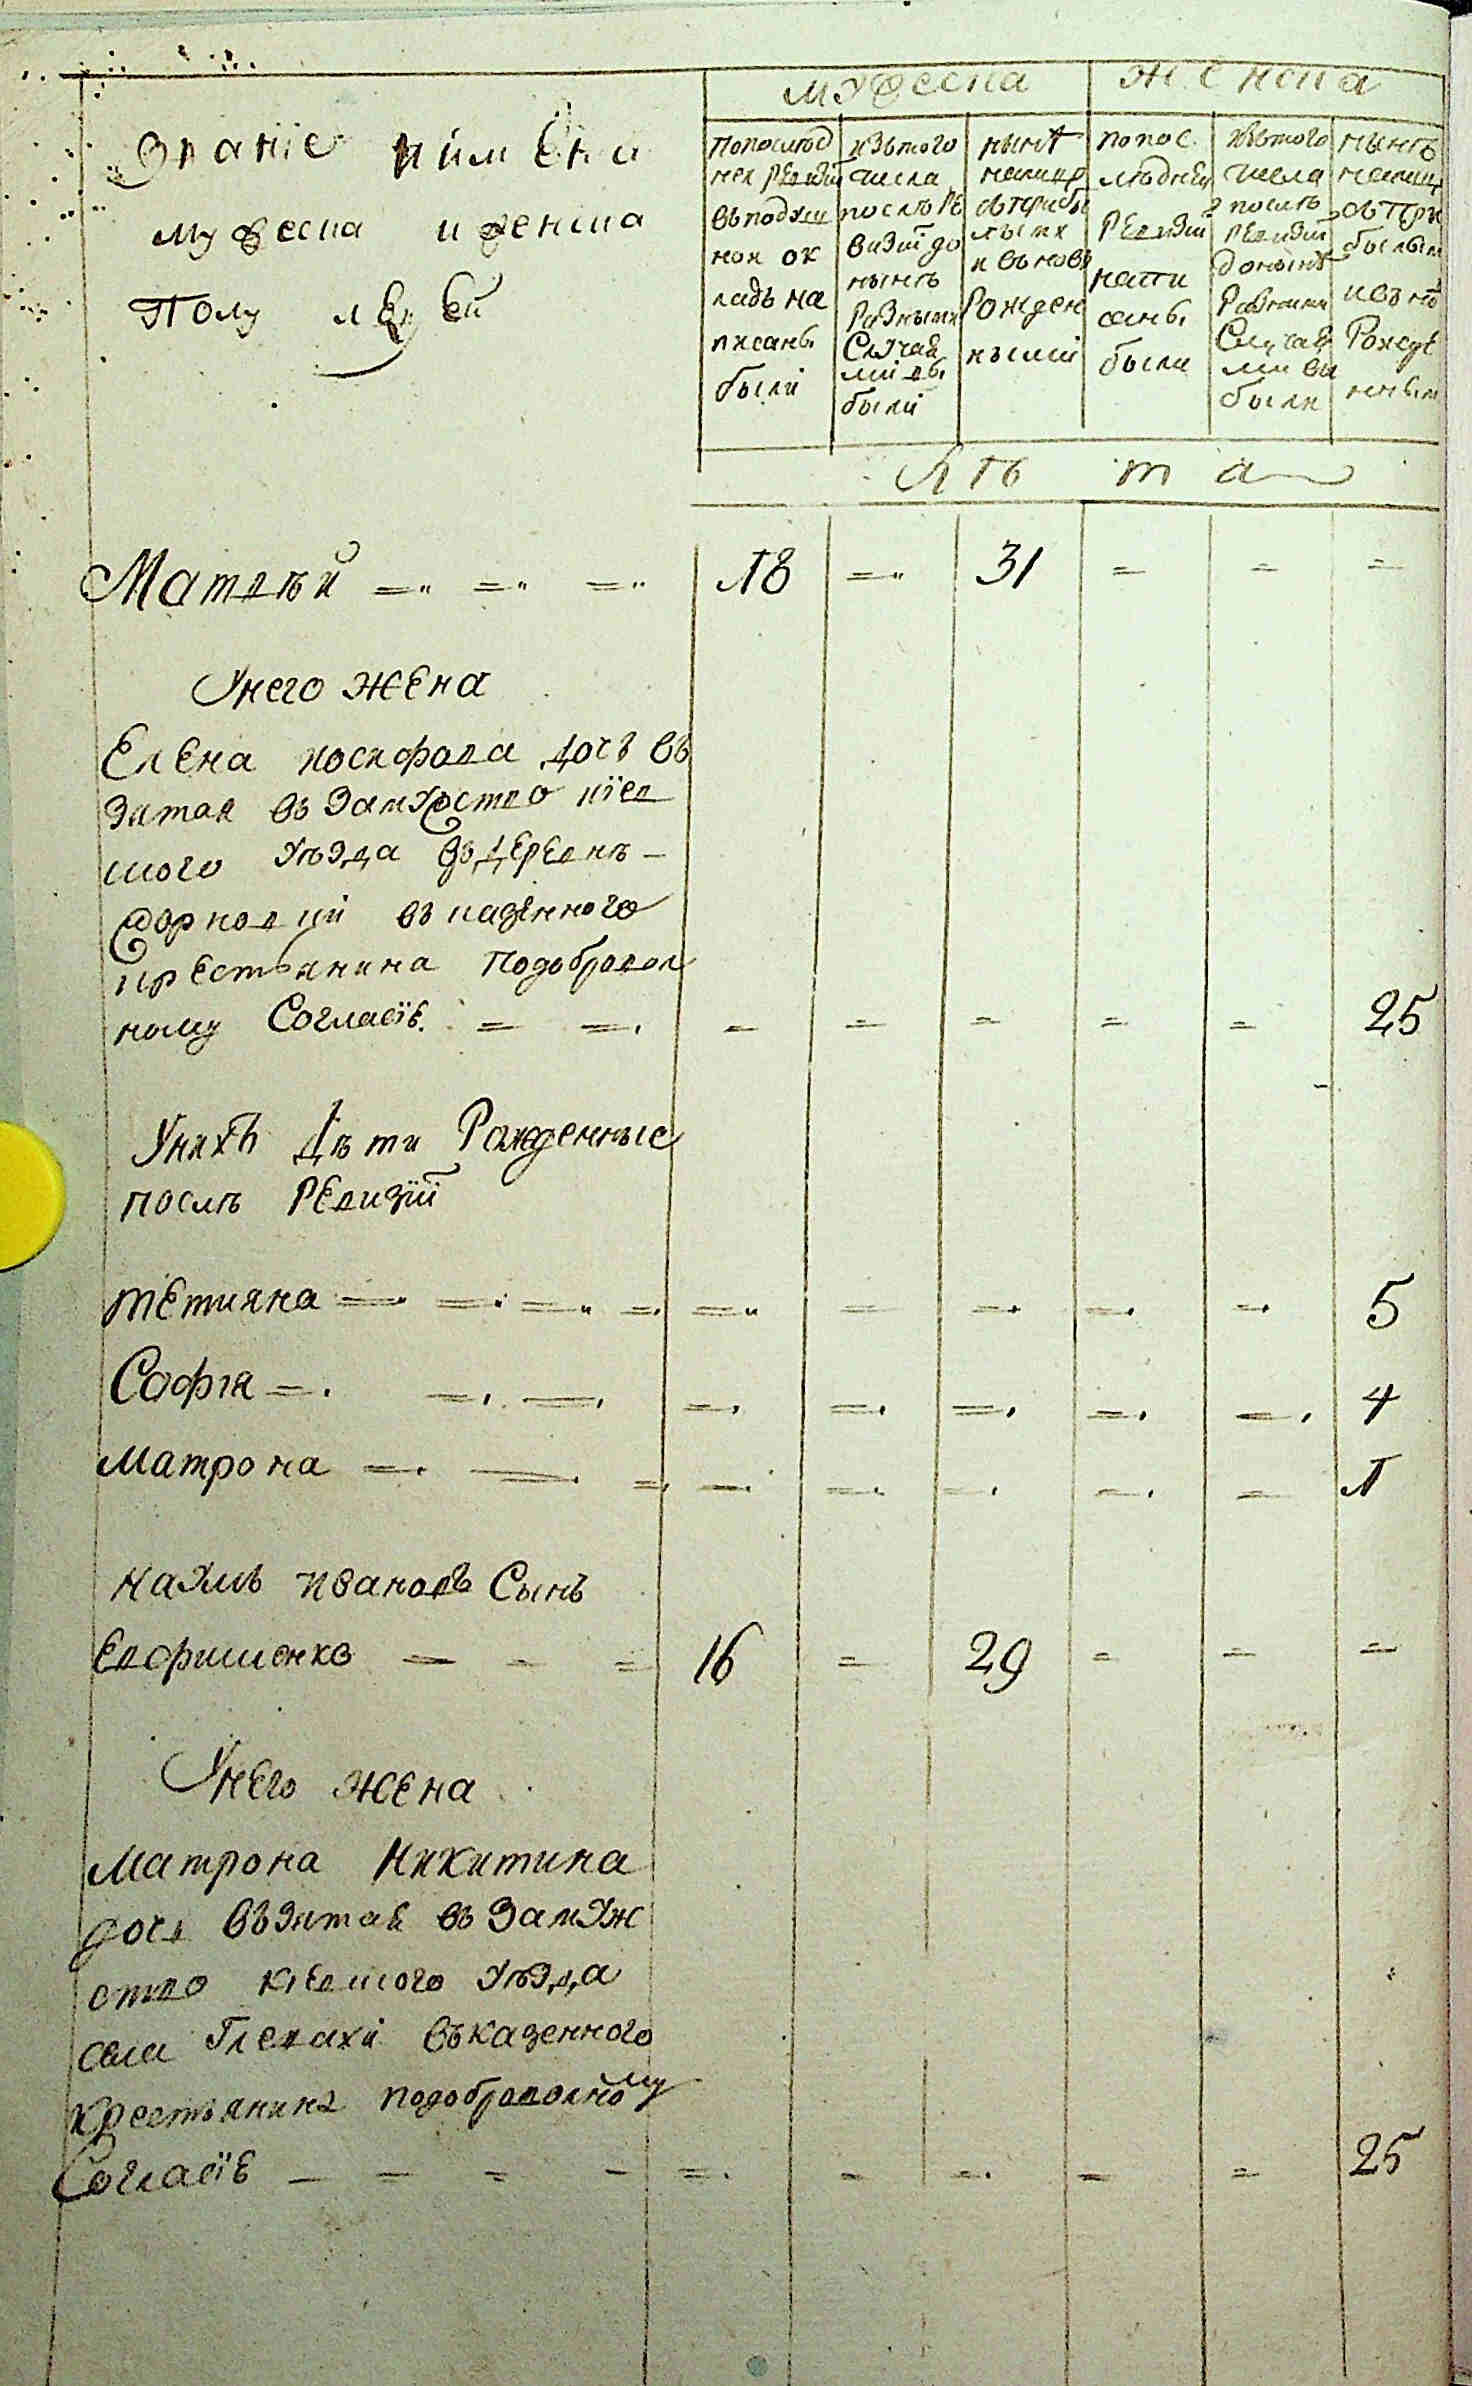 мужеска женска
Званіе и имена
мужеска и женска
полу людей
попослѣд
ней ревизіи
въ подуш
ной ок
ладъ на
писаны
были
изътого
числа
послѣ ре
визіи до
нынѣ
разными
случая
ми вы
были
нынѣ
налицо
съ прибы
лыми
и вьновь
рожден
ными
попос
лѣдней
ревизіи
напи
саны
были
изътого
числа
послѣ
ревизіи
донынѣ
разными
случая
ми вы
были
нынѣ
налицо
съ при
былыми
и въно
рожде
нными
Лѣта
Матвѣй 18 31
Унего жена
Елена иосифова дочь въ
зятая въ замужство кіев
ского уѣзда въ деревнѣ
въ казенного
крестьянина подобровол
ному согласіе 25
Унихъ дѣти рожденные
послѣ ревизіи
тетияна 5
Софія 4
Матрона 1
наумъ ивановъ сынъ
Евфименко 16 29
Унего жена
Матрона Никитина
дочь въвзятая въ замуж
ство кіевского уѣзда
села Глевахи въ казенного
крестьянина подоброволному
Согласіе 25